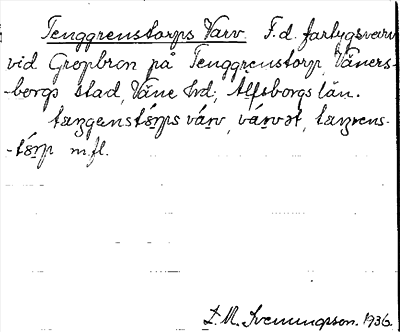 Tenggrenstorps Varv. F.d. fartygsvarv
vid Gropbron på Tenggrenstorp, Väners-
-borgs stad, Väne hd, Älfsborgs län.
taŋgenstórps várv, várvət, taŋrens-
-tórp m.fl.
L. M. Svenungsson. 1936.